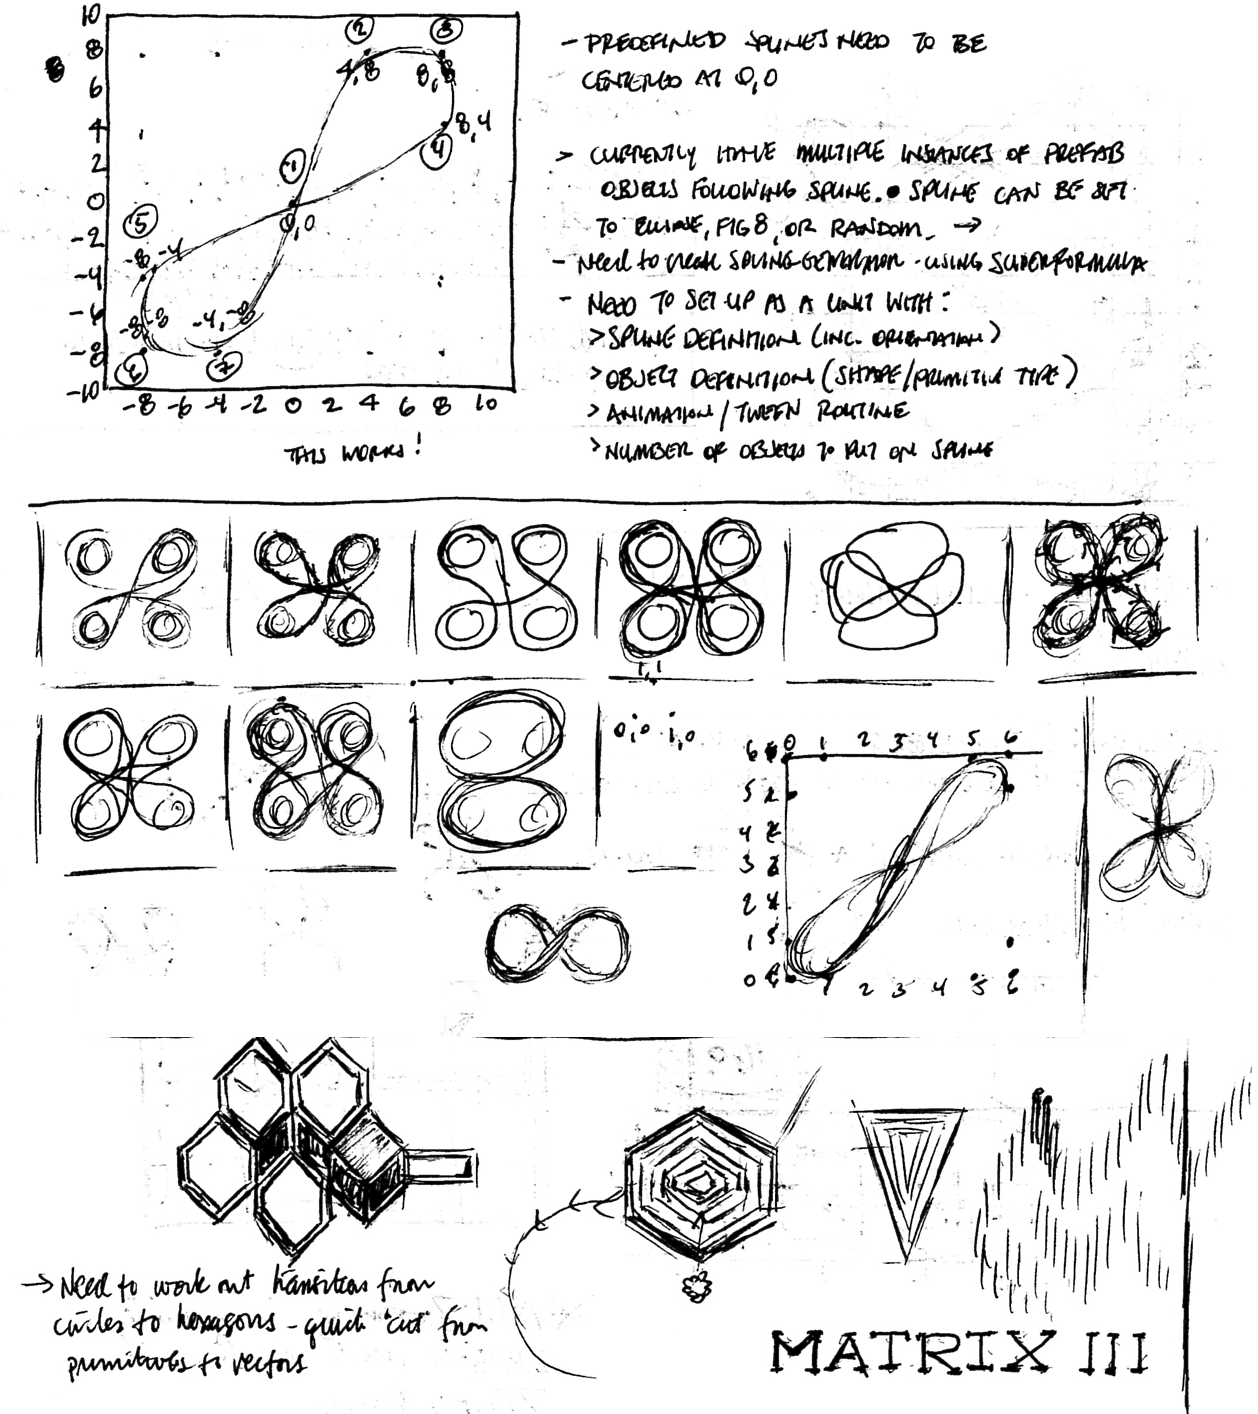 10
8
6
4
2
0
-2
-4
-6
-8
-10
-8 -6 -4 -2 0 2 4 6 8 10
2 3
4,8 8,8
8,4
4
1
0,0
5
-8 -4
-8 -8 -4, -8
6 7
THIS WORKS!
- PREDEFINED SPLINES NEED TO BE
CENTERED AT 0,0
> CURRENTLY HAVE MULTIPLE INSTANCES OF PREFAB
OBJECTS FOLLOWING SPLINE. SPLINE CAN BE SET
TO ELLIPSE, FIG 8, OR RANDOM. →
- Need to create SPLINE GENERATION - USING SUPERFORMULA
- NEED TO SET UP AS A UNIT WITH:
> SPLINE DEFINITION (INC. ORIENTATION)
> OBJECT DEFINITION (SHAPE/PRIMITIVE TYPE)
> ANIMATION / TWEEN ROUTINE
> NUMBER OF OBJECTS TO PUT ON SPLINE
1,1
0,0 1,0
0 1 2 3 4 5 6
6
5
4
3
2
1
0
1 2 3 4 5 6
→ Need to work out transitions from
circles to hexagons - quick "cut" from
primitives to vectors
MATRIX III